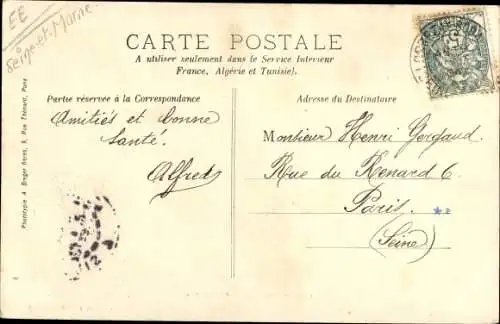 EE
Seine-et-Marne
CARTE POSTALE
A utiliser seulement dans le Service Interieur
France, Algérie et Tunisie).
Partie réservée à la Correspondance
Amitiés et bonne
Santé.
Alfred
Adresse du Destinataire
Monsieur Henri Gergaud
Rue du Renard 6.
Paris.
(Seine)
Phototypie A. Breger frères, 9, Rue Thénard, Paris